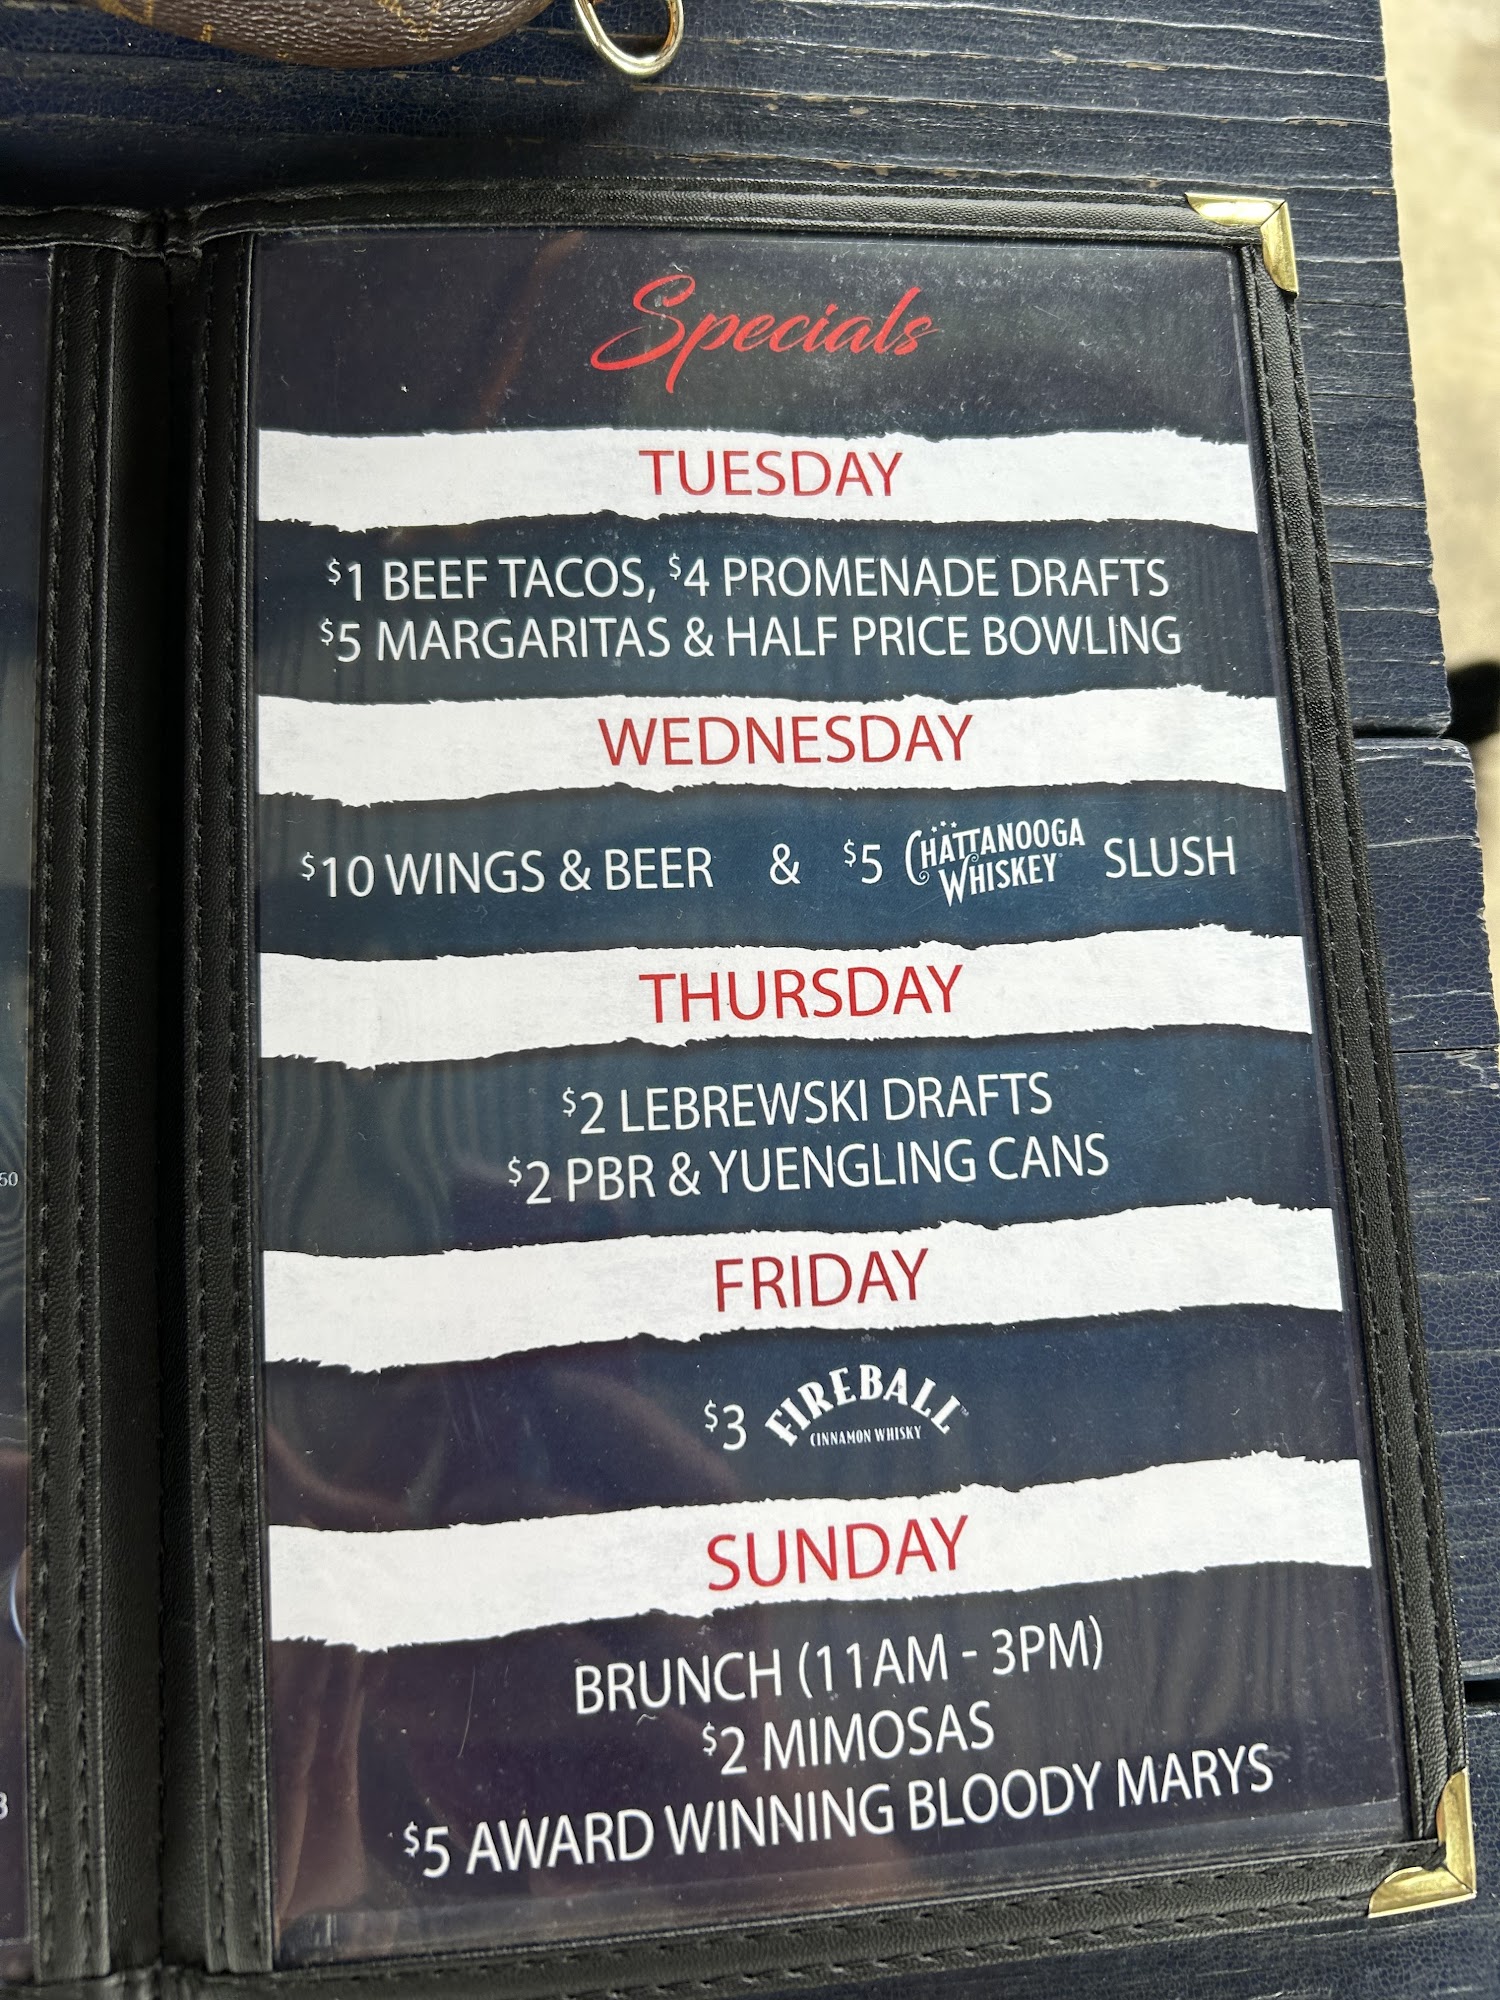 Specials
TUESDAY
$1 BEEF TACOS, $4 PROMENADE DRAFTS
$5 MARGARITAS & HALF PRICE BOWLING
WEDNESDAY
$10 WINGS & BEER & $5 CHATTANOOGA WHISKEY SLUSH
THURSDAY
$2 LEBREWSKI DRAFTS
$2 PBR & YUENGLING CANS
FRIDAY
$3 FIREBALL™
CINNAMON WHISKY
SUNDAY
BRUNCH (11AM - 3PM)
$2 MIMOSAS
$5 AWARD WINNING BLOODY MARYS
50